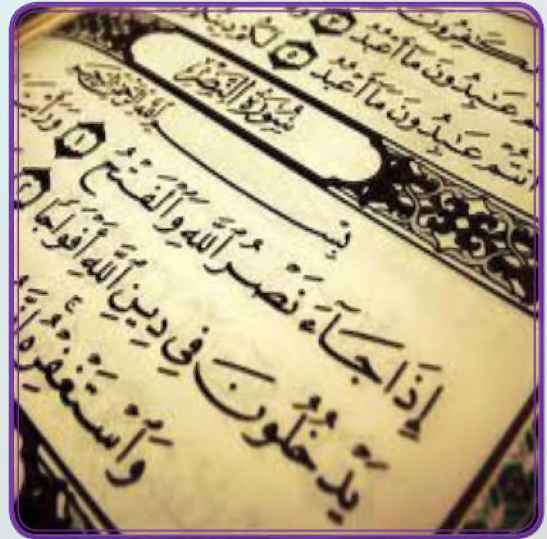 عَـٰبِدُونَ مَآ أَعْبُدُ
أَنتُمْ عَـٰبِدُونَ مَآ أَعْبُدُ ٥ لَكُمْ
سُورَةُ النَّصْرِ
بِسْمِ ٱللَّهِ ٱلرَّحْمَـٰنِ ٱلرَّحِيمِ
إِذَا جَآءَ نَصْرُ ٱللَّهِ وَٱلْفَتْحُ ١ وَرَأَيْتَ
يَدْخُلُونَ فِى دِينِ ٱللَّهِ أَفْوَاجًا ٢
وَٱسْتَغْفِرْهُ